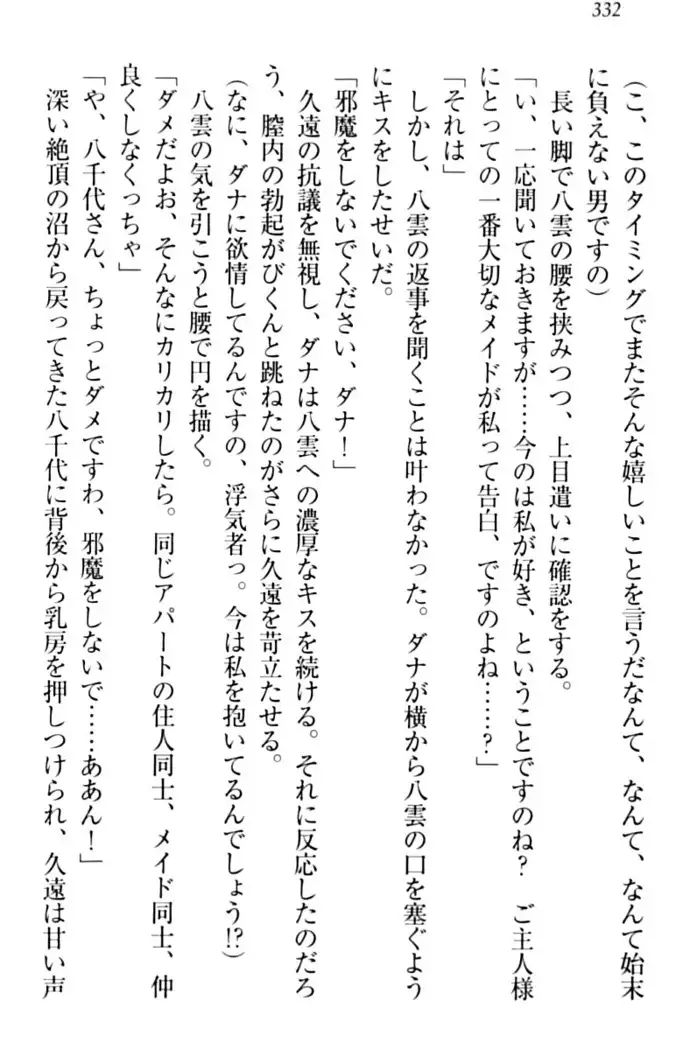 332
(こ、このタイミングでまたそんな嬉しいことを言うだなんて、なんて、なんて始末
に負えない男ですの)
　長い脚で八雲の腰を挟みつつ、上目遣いに確認をする。
「い、一応聞いておきますが……今のは私が好き、ということですのね？　ご主人様
にとっての一番大切なメイドが私って告白、ですのよね……？」
「それは」
　しかし、八雲の返事を聞くことは叶わなかった。ダナが横から八雲の口を塞ぐよう
にキスをしたせいだ。
「邪魔をしないでください、ダナ！」
　久遠の抗議を無視し、ダナは八雲への濃厚なキスを続ける。それに反応したのだろ
う、膣内の勃起がびくんと跳ねたのがさらに久遠を苛立たせる。
(なに、ダナに欲情してるんですの、浮気者っ。今は私を抱いてるんでしょう!?)
　八雲の気を引こうと腰で円を描く。
「ダメだよお、そんなにカリカリしたら。同じアパートの住人同士、メイド同士、仲
良くしなくっちゃ」
「や、八千代さん、ちょっとダメですわ、邪魔をしないで……ああん！」
　深い絶頂の沼から戻ってきた八千代に背後から乳房を押しつけられ、久遠は甘い声